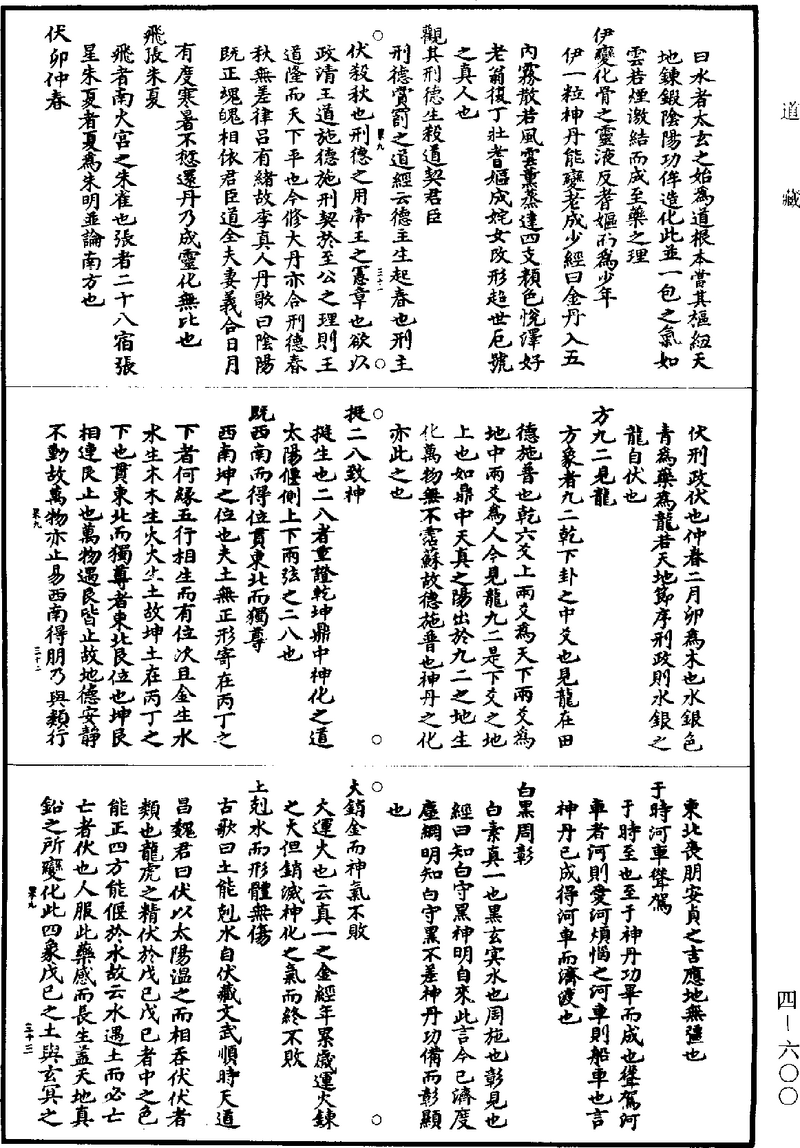 道藏
曰水者太玄之始為道根本當其樞紐天
地鍊鍛陰陽功侔造化此並一包之氣如
雲若煙激結而成至藥之理
伊變化骨之靈液反耆嫗而為少年
伊一粒神丹能變老成少經曰金丹入五
內霧散若風雲薰蒸達四支顏色悅澤好
老翁復丁壯耆嫗成姹女改形超世厄號
之真人也
觀其刑德生殺道契君臣
刑德賞罰之道經云德主生起春也刑主
果九 三十一
伏殺秋也刑德之用帝王之憲章也欲以
政清王道施德施刑契於至公之理則王
道隆而天下平也今修大丹亦合刑德春
秋無差律呂有緒故李真人丹歌曰陰陽
既正魂魄相依君臣道全夫妻義合日月
有度寒暑不愆還丹乃成靈化無比也
飛張朱夏
飛者南火宮之朱雀也張者二十八宿張
星朱夏者夏為朱明並論南方也
伏卯仲春
伏刑政伏也仲春二月卯為木也水銀色
青為藥為龍若天地節序刑政則水銀之
龍自伏也
方九二見龍
方象者九二乾下卦之中爻也見龍在田
德施普也乾六爻上兩爻為天下兩爻為
地中兩爻為人今見龍九二是下爻之地
上也如鼎中天真之陽出於九二之地生
化萬物無不霑蘇故德施普也神丹之化
亦此之也
挺二八致神
挺生也二八者重證乾坤鼎中神化之道
太陽偃側上下兩弦之二八也
既西南而得位貫東北而獨尊
西南坤之位也夫土無正形寄在丙丁之
下者何緣五行相生而有位次且金生水
水生木木生火火生土故坤土在丙丁之
下也貫東北而獨尊者東北艮位也坤艮
相連艮上也萬物遇艮皆止故地德安靜
果九 三十二
不動故萬物亦止易西南得朋乃與類行
東北喪朋安貞之吉應地無疆也
于時河車聳駕
于時至也至于神丹功畢而成也聳駕河
車者河則愛河煩惱之河車則船車也言
神丹已成得河車而濟渡也
白黑周彰
白素真一也黑玄冥水也周施也彰見也
經曰知白守黑神明自來此言今已濟度
塵網明知白守黑不差神丹功備而彰顯
也
火銷金而神氣不敗
火運火也云真一之金經年累歲運火鍊
之火但銷滅神化之氣而終不敗
土剋水而形體無傷
古歌曰土能剋水自伏藏文武順時天道
昌魏君曰伏以太陽溫之而相吞伏伏者
類也龍虎之精伏於戊己戊己者中之色
能正四方能偃於水故云水遇土而必亡
亡者伏也人服此藥感而長生蓋天地真
果九 三十三
鉛之所變化此四象戊己之土與玄冥之
四－六〇〇